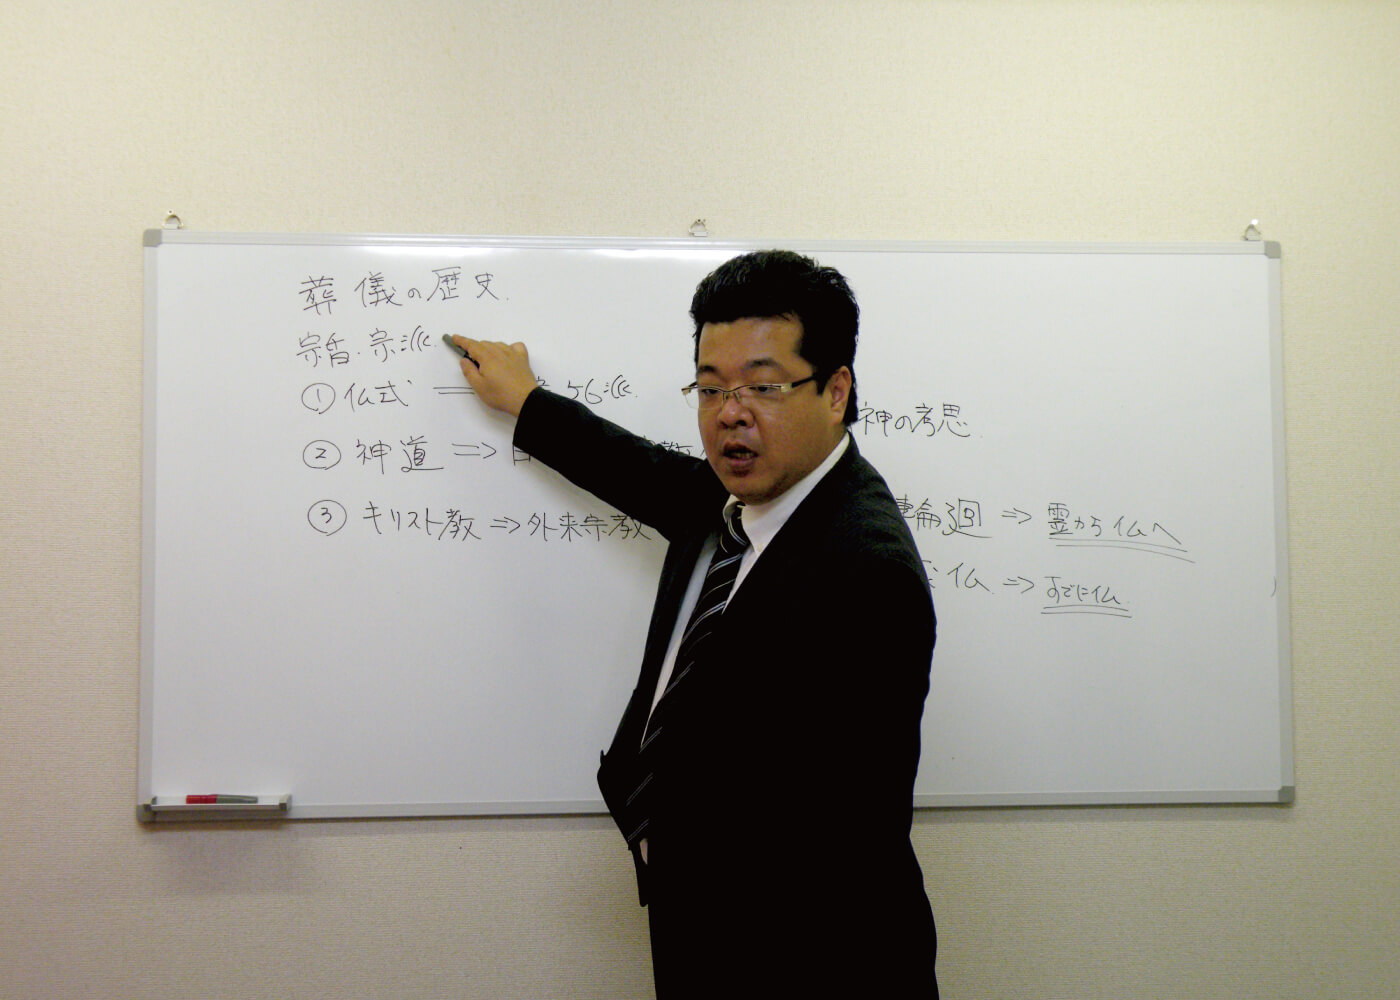 葬儀の歴史.
宗旨.宗派.
①仏式 ⇒ 56派.
②神道 ⇒ 神の考思.
③キリスト教⇒外来宗教
輪廻 ⇒ 霊から仏へ
仏 ⇒ すでに仏.